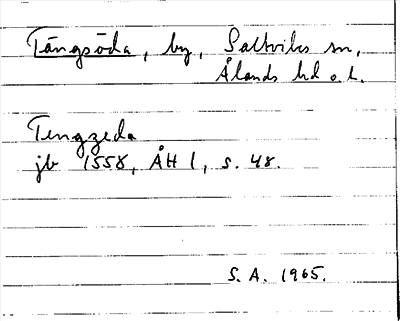 Tängsöda, by, Saltviks sn,
Ålands hd o. l.
Tengzeda
jb 1558, ÅH 1, s. 48.
S. A. 1965.